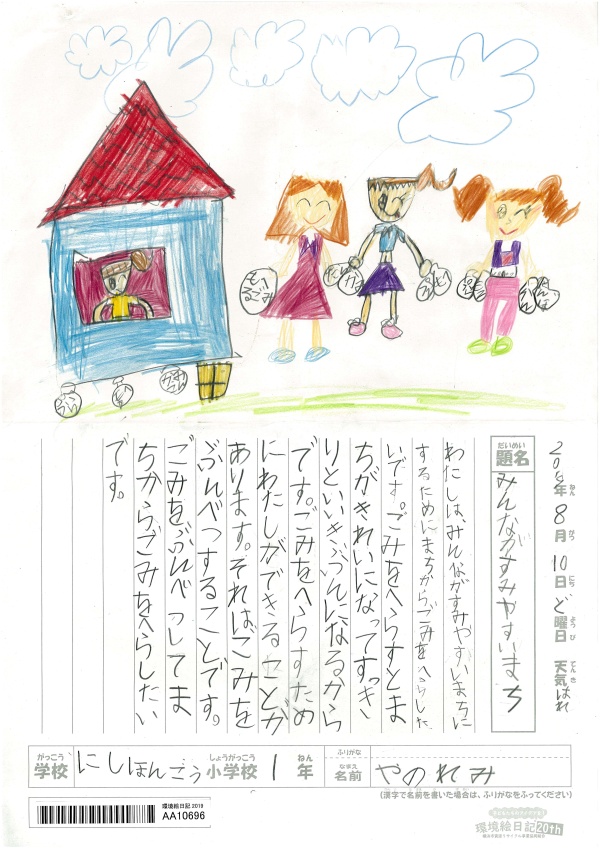 をへ
るごみ
2019年ねん 8月がつ 10日にち ど曜日ようび 天気てんき はれ
だいめい
題名
みんながすみやすいまち
わたしは、みんながすみやすいまちに
するためにまちからごみをへらした
いです。ごみをへらすとま
ちがきれいになってすっき
りといいきぶんになるから
です。ごみをへらすため
にわたしができることが
あります。それはごみを
ぶんべつすることです。
ごみをぶんべつしてま
ちからごみをへらしたい
です。
がっこう
学校
にしほんごう
しょうがっこう
小学校
1
ねん
年
ふりがな
なまえ
名前
やのれみ
(漢字で名前を書いた場合は、ふりがなをふってください)
環境絵日記2019
AA10696
環境絵日記20th